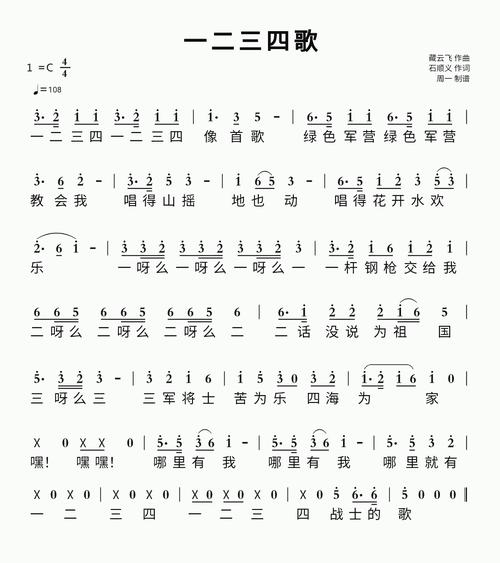 一二三四歌
1 =C 4/4
藏云飞 作曲
石顺义 作词
周一 制谱
♩=108
3· 2 1 1 3· 2 1 1 | 1· 3 5 - | 6· 5 1 1 6· 5 1 1
一二三四一二三四 像首歌 绿色军营绿色军营
3· 6 2 - | 3· 2 5 3 - | 1 6 5 3 - | 6· 5 1 2 3 5 3
教会我 唱得山摇 地也动 唱得花开水欢
2· 6 1 - | 3 3 2 3 3 2 3 3 2 3 | 3· 2 1 1 6· 5 6
乐 一呀么一呀么一呀么一 一杆钢枪交给我
6 6 5 6 6 5 6 6 5 6 | 6· 1 2 2 2 1 6 5
二呀么二呀么二呀么二 二话没说为祖国
5· 3 2 3 - | 3 2 1 6 | 5 5 3 0 3 2 | 1· 2 1 6 1 0
三呀么三 三军将士 苦为乐 四海为 家
X 0 X X 0 | 5· 5 3 6 1 - | 5· 5 3 6 1 - | 5· 5 3 2
嘿! 嘿嘿! 哪里有我 哪里有我 哪里就有
X 0 X 0 | X 0 X 0 | X 0 X 0 X 0 X 0 | 5 5 6· 6 | 5 0 0 0
一二三四一二三四战士的歌